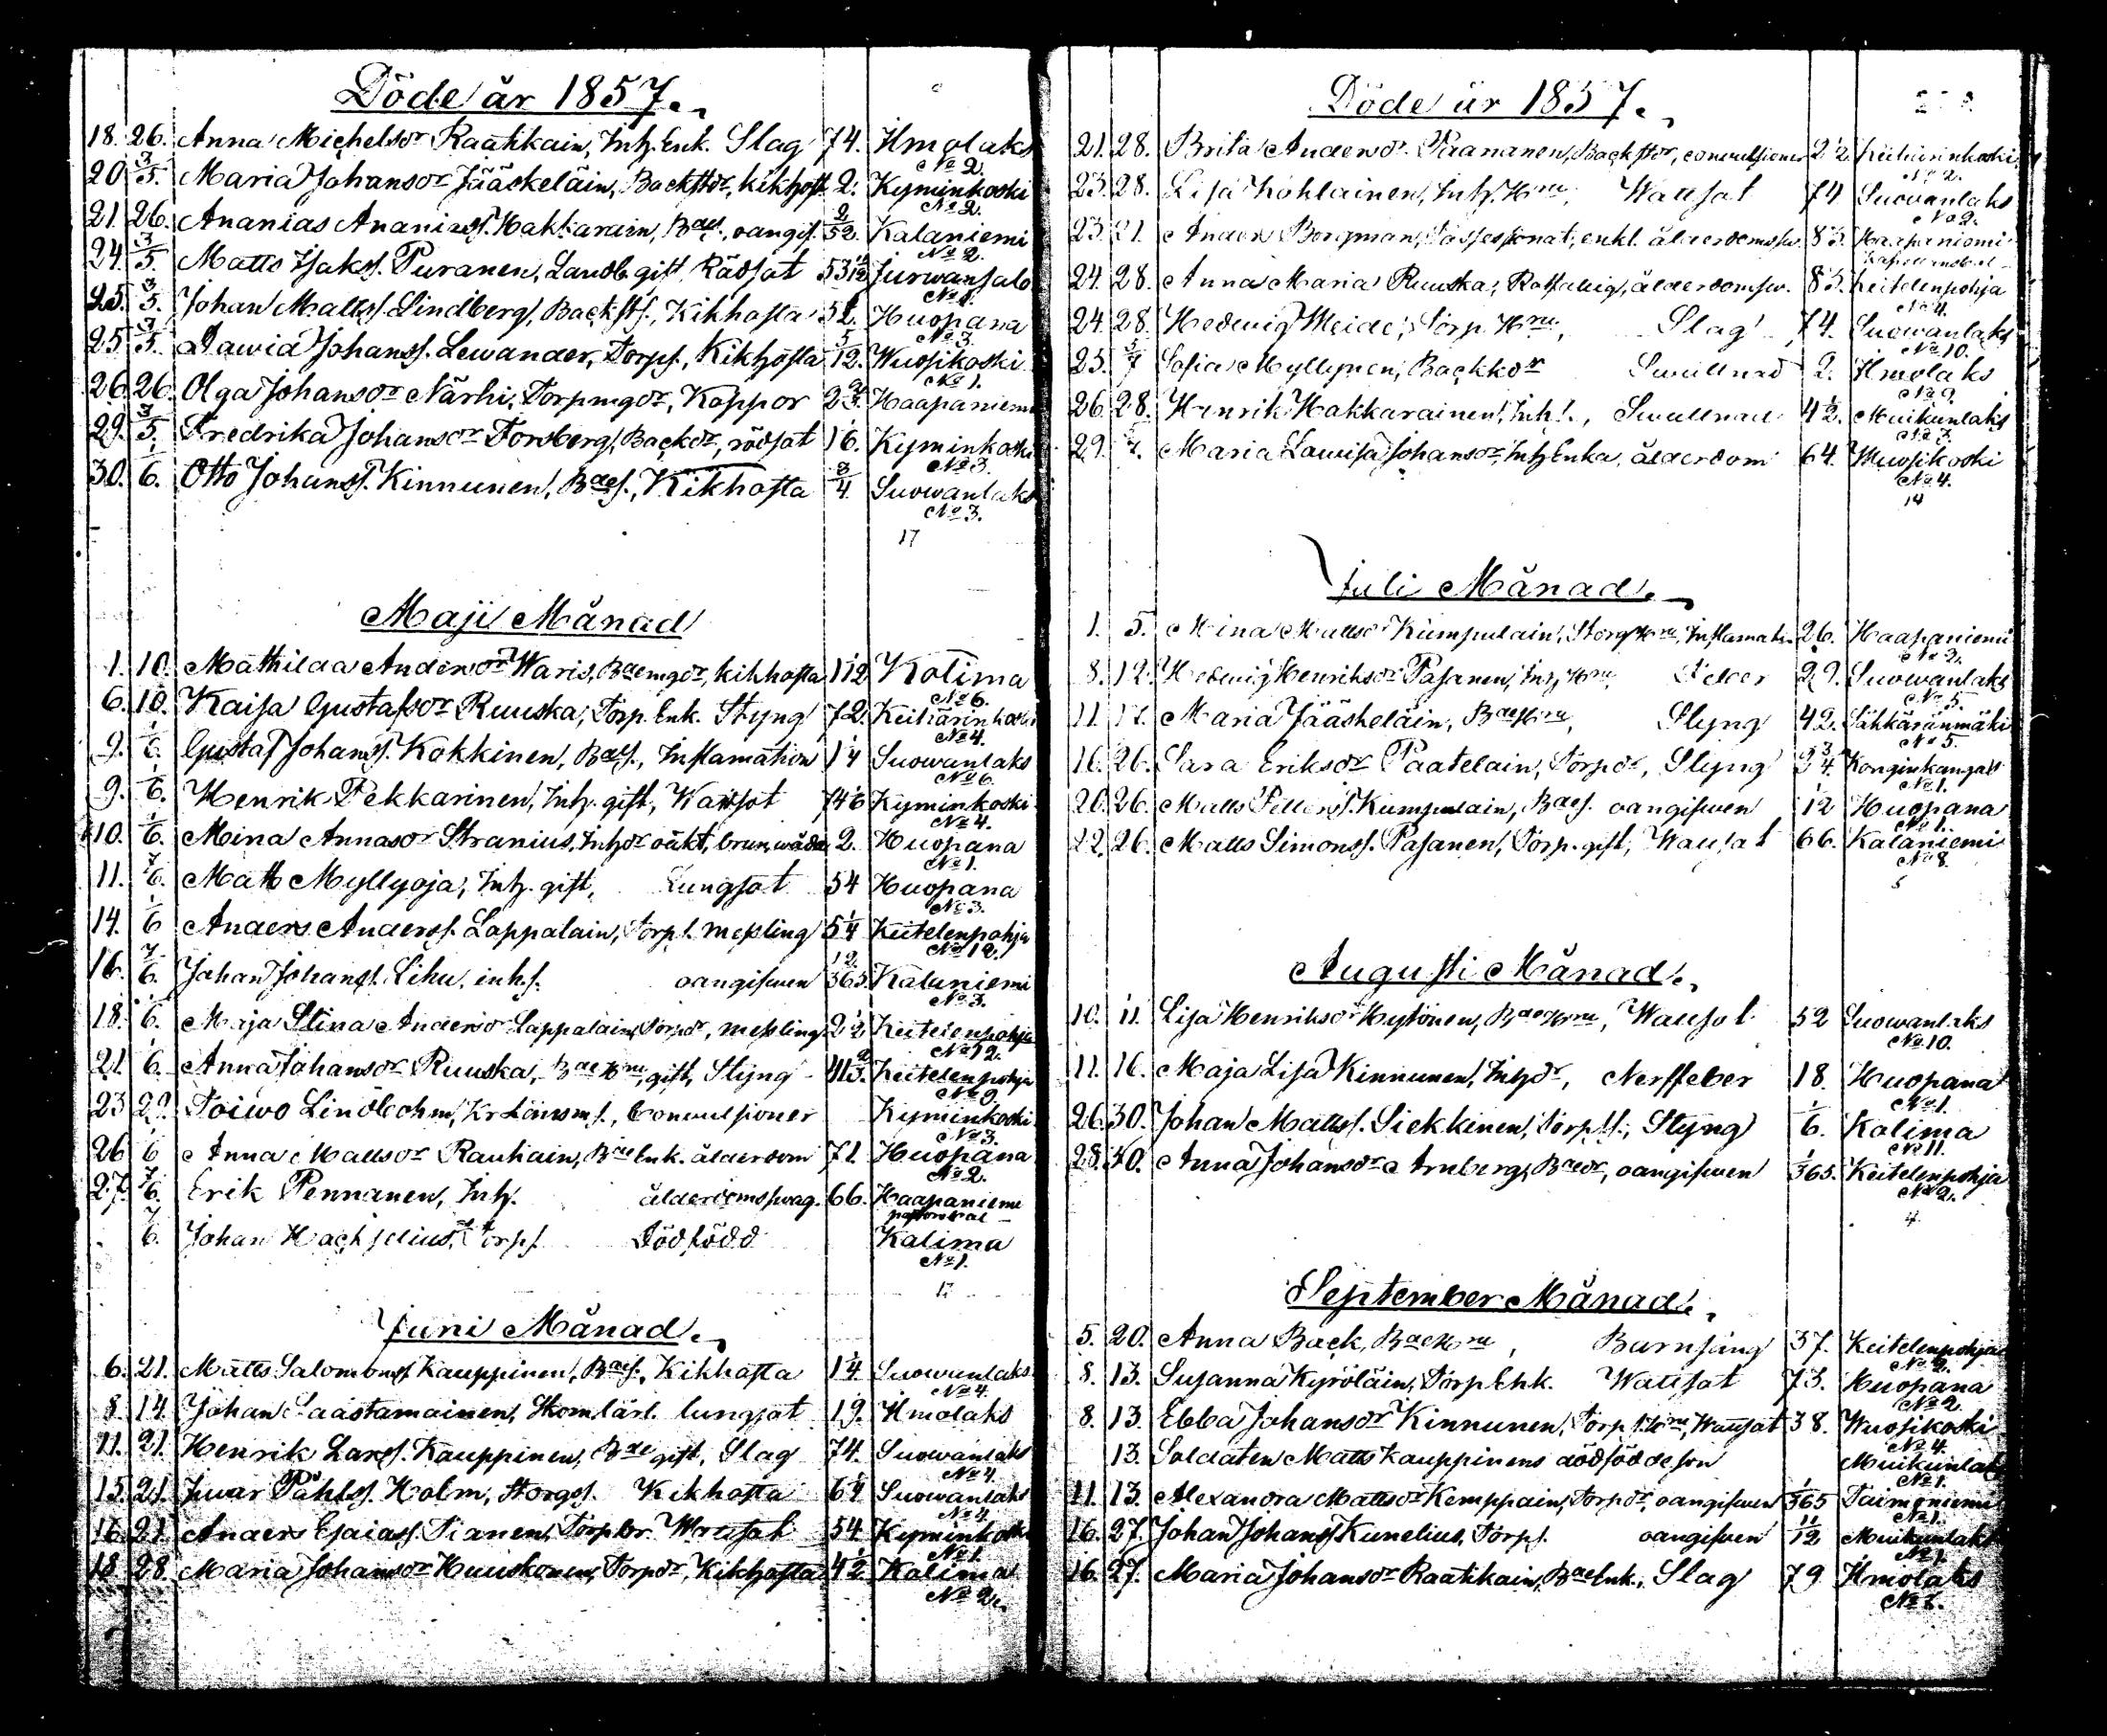 Döde år 1857.
18. 26. Anna Michelsdr Raatikain, Inh. Enk. Slag 74. Ilmolaks
No 2.
20 3/5. Maria Johansdr Jääskeläin, Backstdr, kikhosta 2. Kyminkoski
No 2.
21. 26. Ananias Ananiass. Hakkarain, Bdes., oangif. 2/52. Kalaniemi
No 2.
24. 3/5. Matts Isaks. Puranen, Landb. gift, Rödsot 53 1/12 Jurwansalo
No 1.
25. 3/5. Johan Matts. Lindberg, Backsts., Kikhosta Huopana
No 3.
25 3/5. Dawid Johans. Lewander, Torps., Kikhosta 5/12. Wuosikoski
No 1.
26. 26. Olga Johansdr Närhi, Torpmgdr, Koppor Haapaniemi
29. 3/5. Fredrika Johansdr Forsberg, Backdr, rödsot 16. Kyminkoski
No 3.
30. 1/6. Otto Johans. Kinnunen, Bdes., Kikhosta 3/4 Suowanlaks
No 3.
17
Maji Månad
1. 10. Mathilda Andersdr Waris, Bdemgdr, kikhosta 1 1/2 Kolima
No 6.
6. 10. Kaisa Gustafsdr Ruuska, Torp. Enk. Styng 72. Keihärinkoski
No 4.
9. 1/6. Gustaf Johans. Kokkinen, Bdes., Inflamation 1 1/4 Suowanlaks
No 6.
9. 1/6. Henrik Pekkarinen, Inh. gift, Wattsot 74 1/6 Kyminkoski
No 4.
10. 1/6. Mina Annasdr Stranius, Inhdr oäkt, brun wäda 2. Huopana
No 1.
11. 7/6. Matts Myllyoja, Inh. gift, Lungsot 54 Huopana
No 3.
14. 1/6 Anders Anderss. Lappalain, Torps. messling 5 1/4 Keitelenpohja
No 12.
16. 7/6. Johan Johans. Lihu, inh.s. oangifwen 12/365 Kalaniemi
No 3.
18. 1/6. Maja Stina Andersdr Lappalain, Torpdr, messling 2 1/2 Keitelenpohja
No 12.
21. 1/6. Anna Johansdr Ruuska, Bde Hru, gift, Styng Keitelenpohja
No 9.
23 29. Toiwo Lindbohm, Kr. Länsm.s., Convulsioner Kyminkoski
No 3.
26 1/6 Anna Mattsdr Rauhain, Bde Enk. ålderdom 71. Huopana
No 2.
27. 7/6. Erik Pennanen, Inh. ålderdomswag. 66. Haapaniemi
7/6. Johan Hackselius, Torps. Dödfödd Kalima
No 1.
Juni Månad.
6. 21. Matts Salomons. Kauppinen, Bdes., Kikhosta 1 1/4 Suowanlaks
No 4.
8. 14. Johan Saastamainen, Skom. lärl. lungsot 19. Ilmolaks
11. 21. Henrik Larss. Kauppinen, Bde gift, Slag 74. Suowanlaks
No 4.
15. 21. Iwar Påhls. Holm, Storgs. Kikhosta 6 1/4 Suowanlaks
No 4.
16. 21. Anders Esaias. Tianen, Torpbr. Wattsot 54. Kyminkoski
No 1.
18. 28. Maria Johansdr Huuskonen, Torpdr, Kikhosta 4 1/2 Kalima
No 2.
Döde år 1857.
21. 28. Brita Andersdr Paananen, Backstdr, convulsioner 2 1/2 Keihärinkoski
No 2.
23. 28. Lisa Kohlainen, Inh. Hru, Wattsot 74 Suowanlaks
No 9.
23. 21. Anders Borgman, enkl. ålderdomssw. 83. Haapaniemi
24. 28. Anna Maria Ruuska, Rotfattig, ålderdomssw. 83. Keitelenpohja
No 4.
24. 28. Hedewig Meide, Torp. Hru, Slag 74. Suowanlaks
No 10.
25. 5/7 Sofia Myllynen, Backdr Swullnad 2. Ilmolaks
No 9.
26. 28. Henrik Hakkarainen, Inh.s., Swullnad 4 1/2. Muikunlaks
No 7.
29. 5/7. Maria Lowisa Johansdr, Inh Enka, ålderdom 64. Wuosikoski
No 4.
14
Juli Månad.
1. 5. Mina Mattsdr Kumpulain, Storg Hru, Inflamation 26. Haapaniemi
8. 12. Hedewig Henriksdr Pasanen, Inh Hru, Feber 29. Suowanlaks
No 5.
11. 17. Maria Jääskeläin, Bde Hru, Styng 42. Sähkäränmäki
No 5.
16. 26. Sara Eriksdr Paatelain, Torpdr, Styng Konginkangas
No 1.
20. 26. Matts Petters. Kumpulain, Bdes. oangifwen 1/12 Huopana
No 1.
22. 26. Matts Simons. Pasanen, Torp. gift, Wattsot 66. Kalaniemi
No 8.
5
Augusti Månad.
10. 11. Lisa Henriksdr Hytönen, Bde Hru, Wattsot 52 Suowanlaks
No 10.
11. 16. Maja Lisa Kinnunen, Inhdr, Nerffeber 18. Huopana
No 1.
26. 30. Johan Matts. Siekkinen, Torps., Styng 1/6. Kalima
No 11.
28. 30. Anna Johansdr Arnberg, Bdedr, oangifwen 1/365. Keitelenpohja
No 2.
4.
September Månad.
5. 20. Anna Back, Bde Hru, Barnsäng 37. Keitelenpohja
No 9.
8. 13. Susanna Kyröläin, Torp Enk. Wattsot 73. Huopana
No 2.
8. 13. Ebba Johansdr Kinnunen, Torp.s. Hru, Wattsot 38. Wuosikoski
No 4.
13. Soldaten Matts Kauppinens dödfödde son Muikunlaks
No 1.
11. 13. Alexandra Mattsdr Kemppain, Torpdr, oangifwen 1/365 Taimoniemi
No 1.
16. 27. Johan Johans. Kunelius, Torps. oangifwen 11/12 Muikunlaks
No 1.
16. 27. Maria Johansdr Raatikain, Bde Enk., Slag 79 Ilmolaks